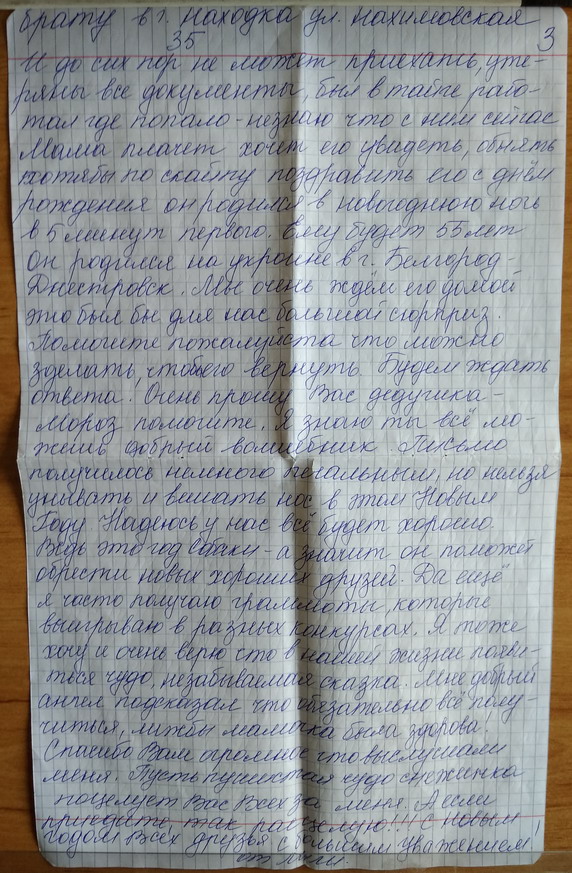 брату в г. Находка ул. Нахимовская
35
3
И до сих пор не может приехать, уте-
ряны все документы, был в тайге рабо-
тал где попало - незнаю что с ним сейчас
Мама плачет хочет его увидеть, обнять
хотябы по скайпу поздравить его с днём
рождения он родился в новогоднюю ночь
в 5 минут первого. Ему будет 55 лет
Он родился на украине в г. Белгород-
Днестровск. Мы очень ждём его домой
это был бы для нас большой сюрприз.
Помогите пожалуйста что можно
зделать, чтобы его вернуть. Будем ждать
ответа! Очень прошу Вас дедушка-
Мороз помогите. Я знаю ты всё мо-
жешь добрый волшебник. Письмо
получилось немного печальным, но нельзя
унывать и вешать нос в этом Новым
Году. Надеюсь у нас всё будет хорошо.
Ведь это год Собаки - а значит он поможет
обрести новых хороших друзей. Да ещё
я часто получаю грамоты, которые
выигрываю в разных конкурсах. Я тоже
хочу и очень верю что в нашей жизни появи-
тся чудо, незабываемая сказка. Мне добрый
ангел подсказал что обязательно всё полу-
читься, лижбы мамочка была здорова!
Спасибо Вам огромное что выслушали
меня. Пусть пушистая чудо снежинка
поцелует Вас Всех за меня. А если
приедите, так расцелую!!! С Новым
годом Всех друзья с большим уважением!
от